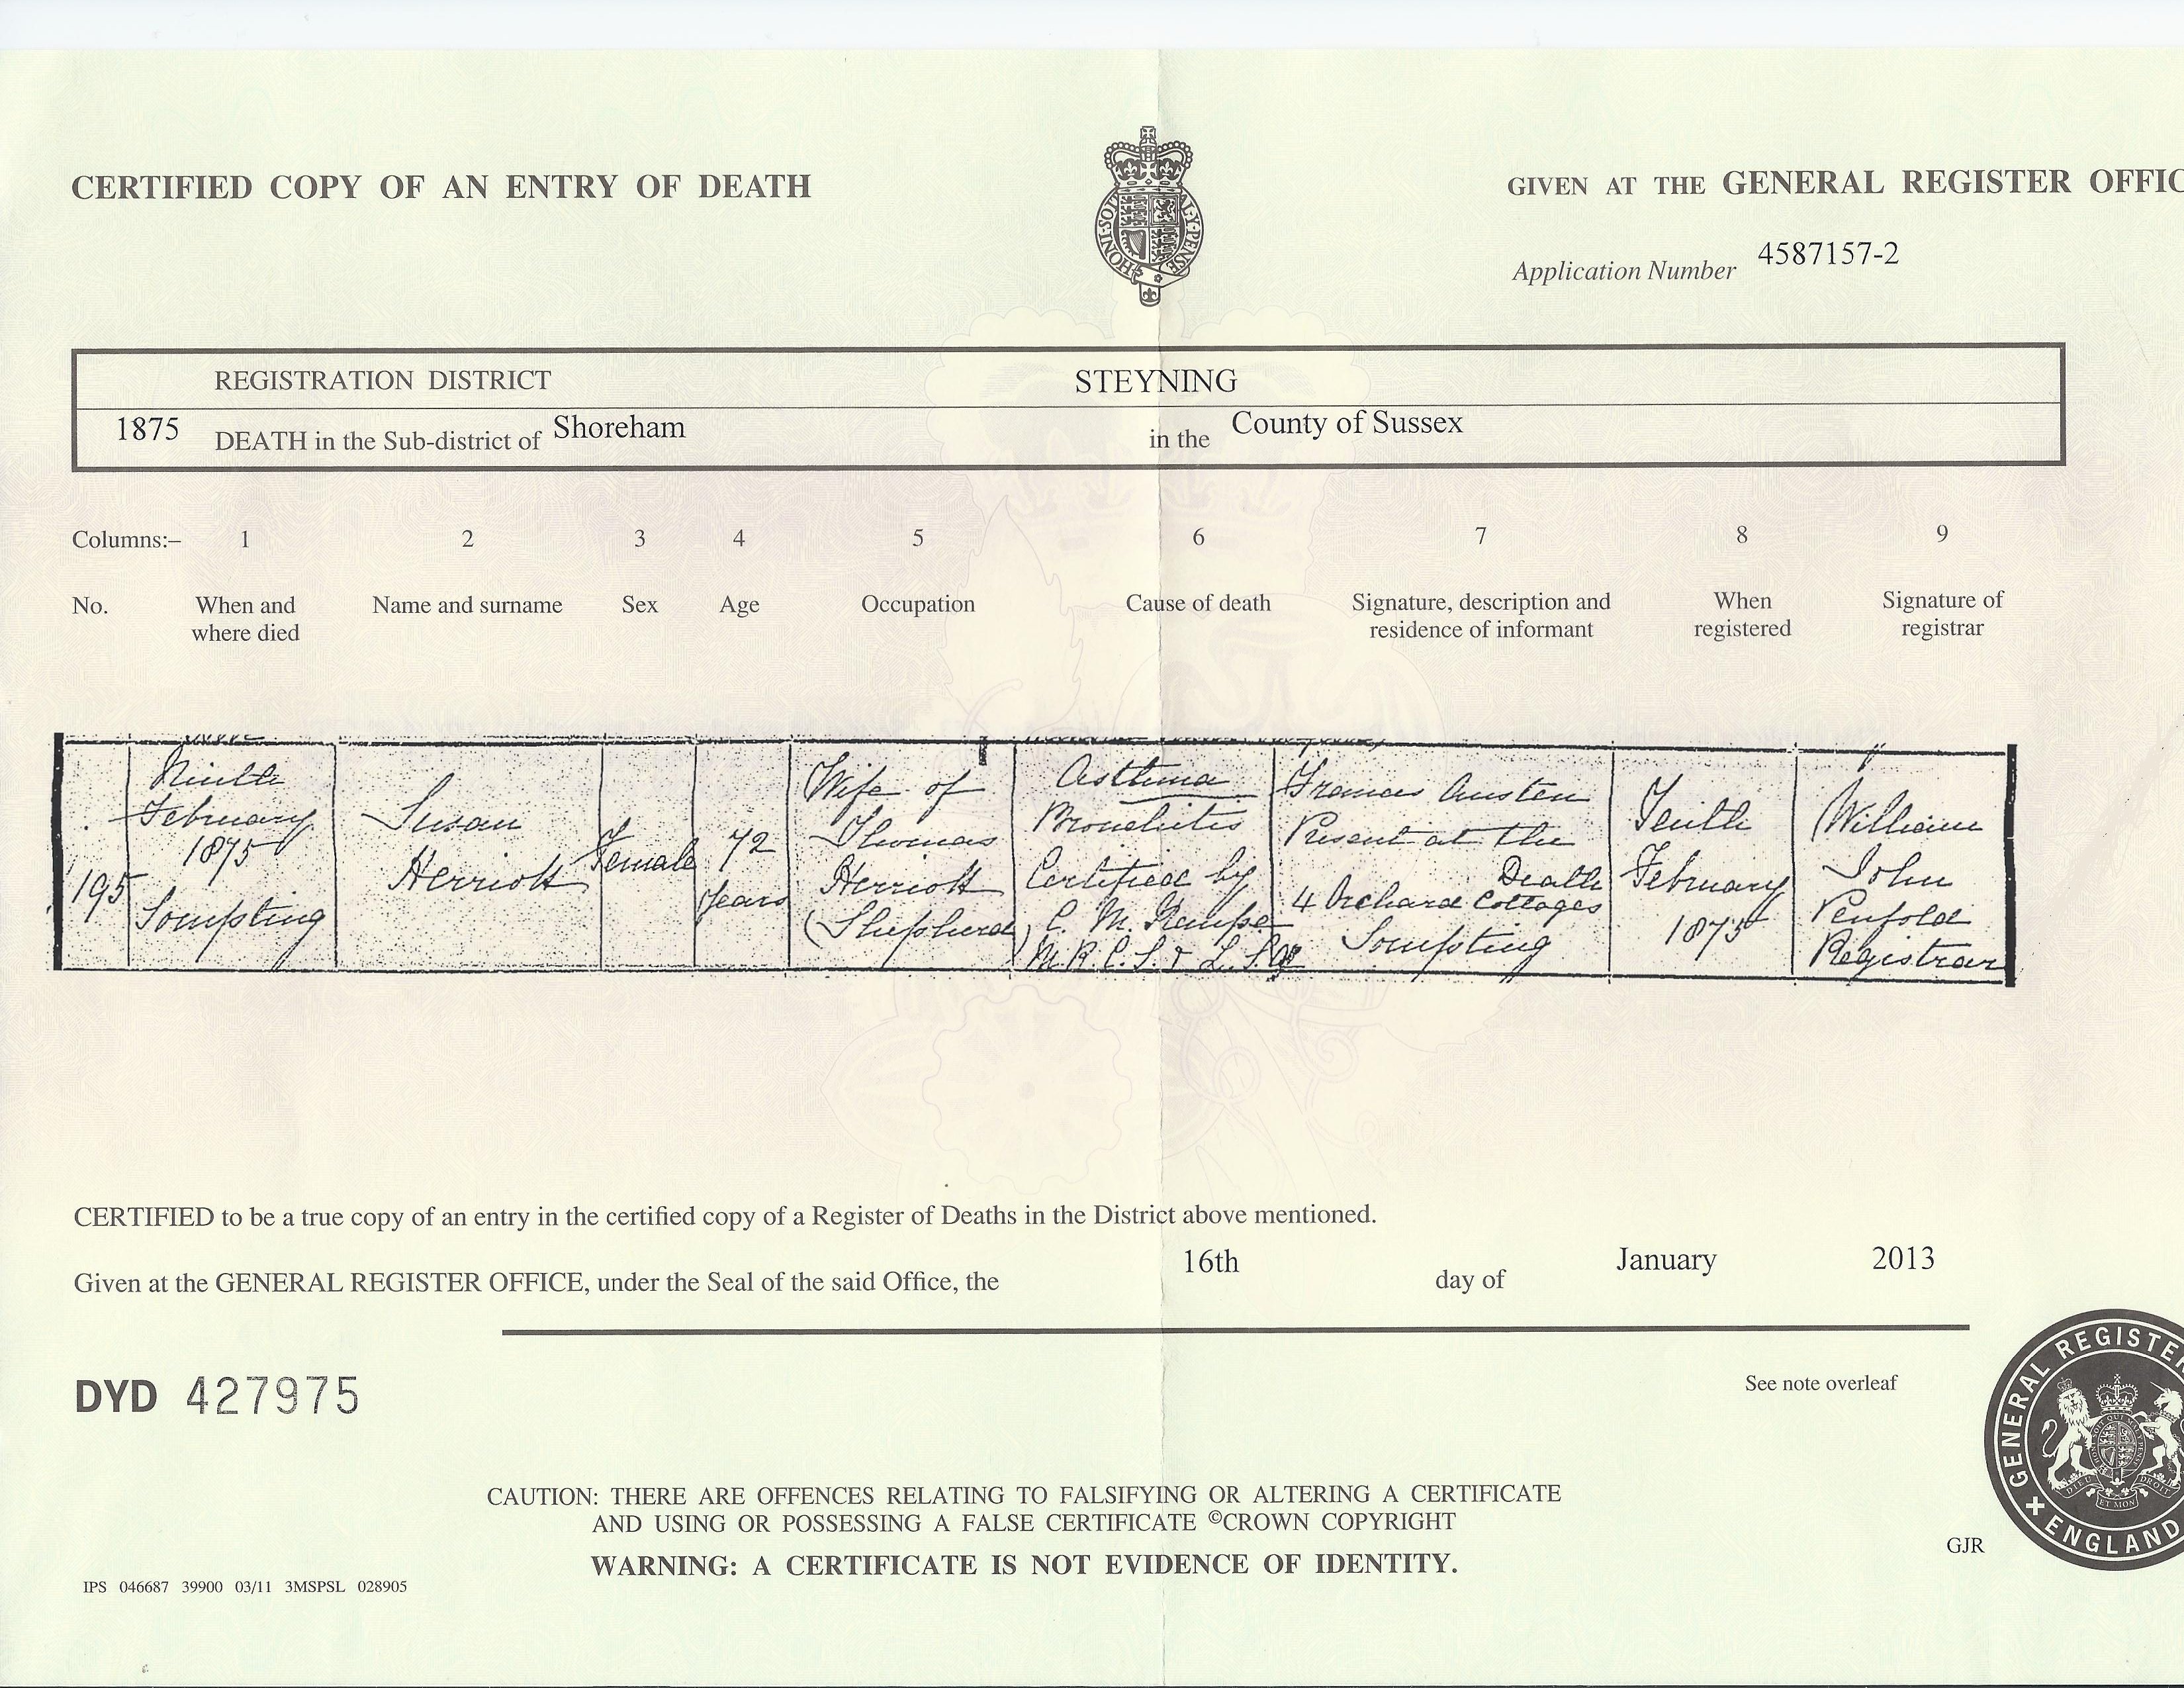 CERTIFIED COPY OF AN ENTRY OF DEATH
GIVEN AT THE GENERAL REGISTER OFFIC
Application Number 4587157-2
HONI·SOI
AL·Y·PENSE
REGISTRATION DISTRICT STEYNING
1875 DEATH in the Sub-district of Shoreham in the County of Sussex
Columns:– 1 2 3 4 5 6 7 8 9
No. When and where died Name and surname Sex Age Occupation Cause of death Signature, description and residence of informant When registered Signature of registrar
195
Ninth
February
1875
Sompting
Susan
Herriott
Female
72
Years
Wife of
Thomas
Herriott
(Shepherd)
Asthma
Bronchitis
Certified by
C. M. Kempe
M.R.C.S. & L.S.A
Frances Austen
Present at the
Death
4 Orchard Cottages
Sompting
Tenth
February
1875
William
John
Penfold
Registrar
CERTIFIED to be a true copy of an entry in the certified copy of a Register of Deaths in the District above mentioned.
Given at the GENERAL REGISTER OFFICE, under the Seal of the said Office, the 16th day of January 2013
DYD 427975
See note overleaf
CAUTION: THERE ARE OFFENCES RELATING TO FALSIFYING OR ALTERING A CERTIFICATE
AND USING OR POSSESSING A FALSE CERTIFICATE ©CROWN COPYRIGHT
WARNING: A CERTIFICATE IS NOT EVIDENCE OF IDENTITY.
IPS 046687 39900 03/11 3MSPSL 028905
GJR
GENERAL REGISTE
ENGLAND